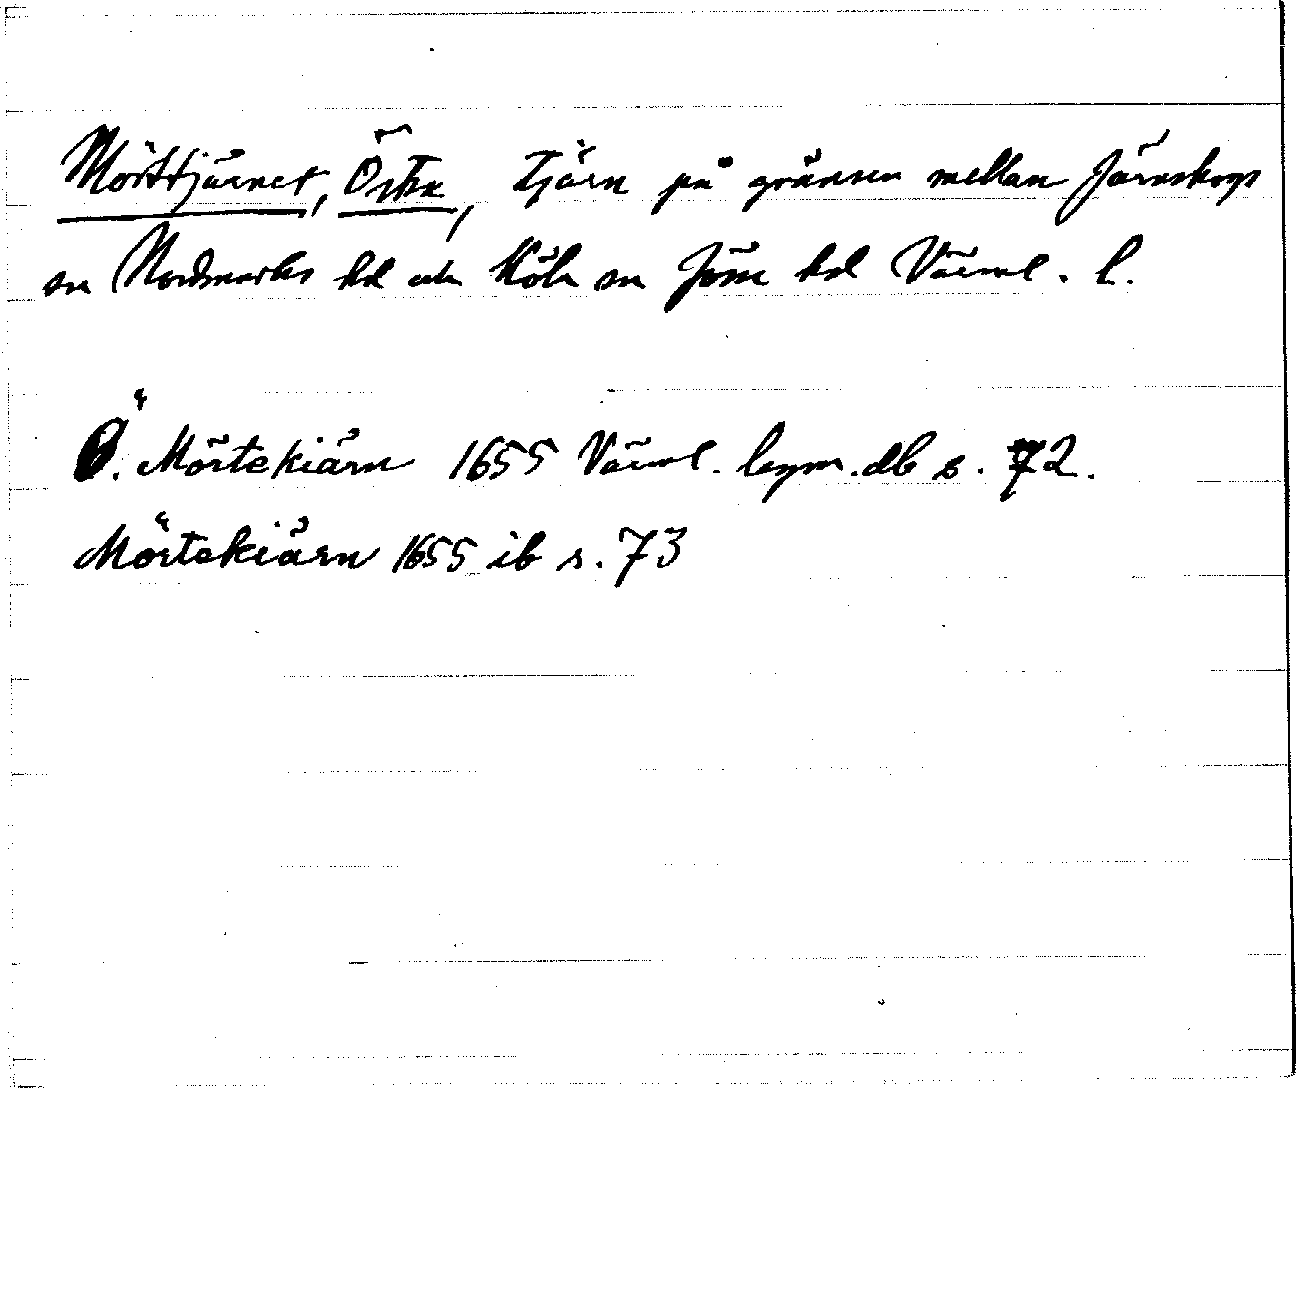 Mörttjärnet, Östra, tjärn på gränsen mellan Järnskogs
sn Nordmarks hd och Köla sn Jösse hd Värml. l.
Ö. Mörtekiärn 1655 Värml. legym.db s. 72.
Mörtekiärn 1655 ib s. 73